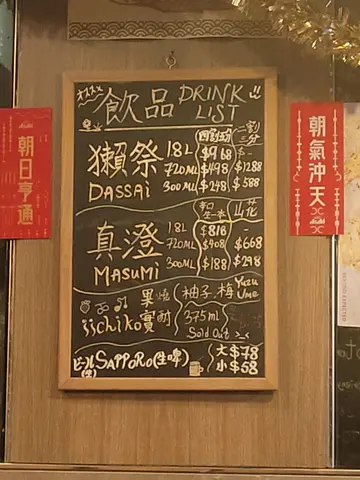 オススメ
飲品 DRINK LIST !!
四割五分 二割三分
獺祭 1.8L $968 $-
DASSAi 720ML $498 $1288
300ML $248 $588
辛口生一本 山花
真澄 1.8L $816 -
MASUMi 720ML $408 $668
300ML $188 $298
果燒 柚子,梅 Yuzu Ume
iichiko 實酎 375ml
Sold Out >_<
ビール(生) SAPPORO(生啤) 大$78
小$58
Asahi
朝日亨通
朝氣沖天
Asahi